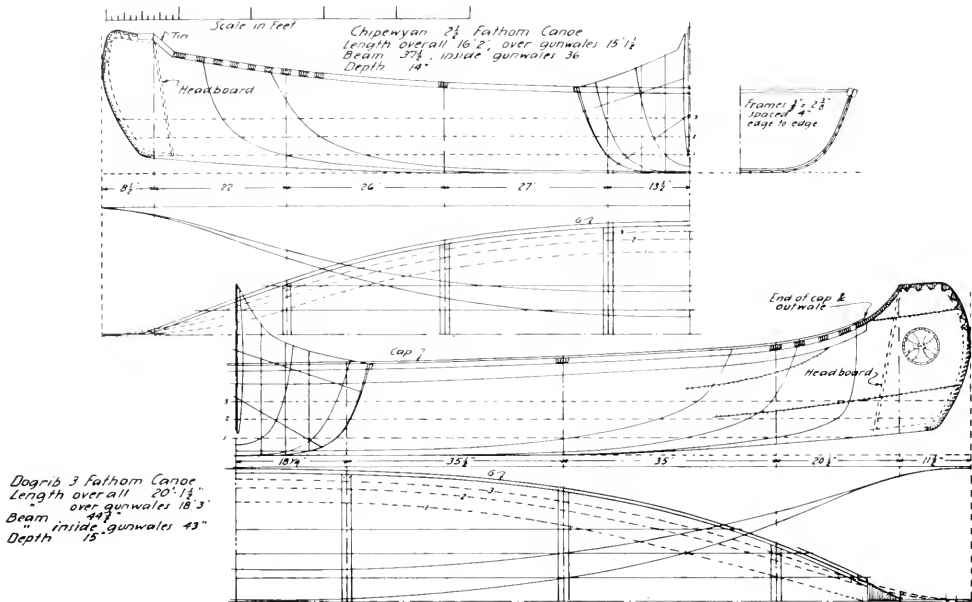 Scale in Feet
Chipewyan 2½ Fathom Canoe
Length overall 16' 2", over gunwales 15' 1½"
Beam 37½", inside gunwales 36
Depth 14"
Tin
Headboard
Frames
spaced 4"
edge to edge
8½" 22 26" 27" 13½"
G
3
2
1
End of cap &
outwale
Cap
Headboard
3
2
1
18¼" 35½" 35" 20½" 11½"
G
3
2
1
Dogrib 3 Fathom Canoe
Length over all 20' 1½"
" over gunwales 18' 3"
Beam 44½"
" inside gunwales 43"
Depth 15"